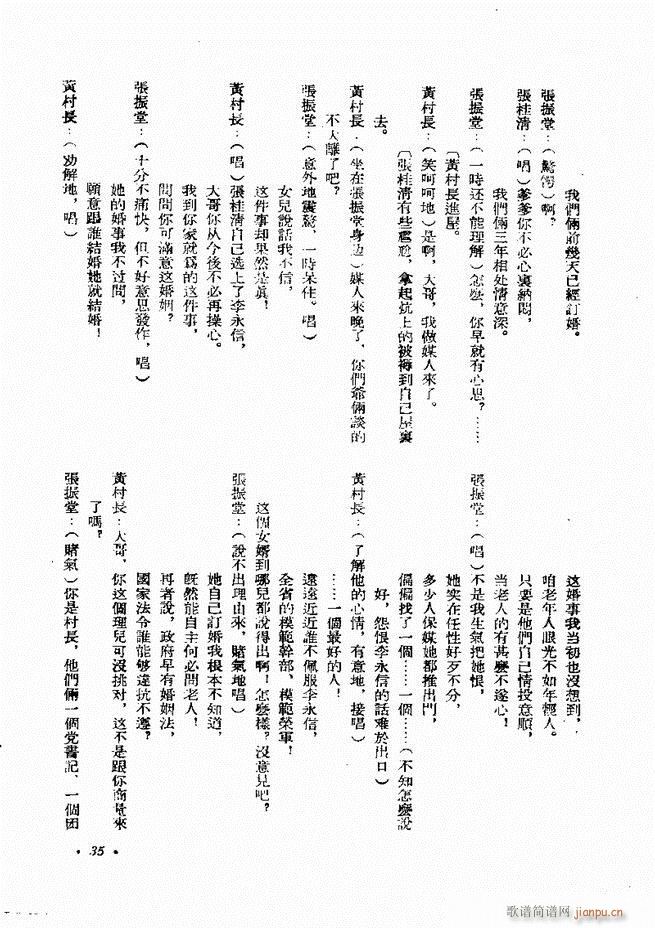 我們倆前幾天已經訂婚。
張振堂：（驚愕）啊？
張桂清：（唱）爹爹你不必心裏納悶，
我們倆三年相处情意深。
張振堂：（一時还不能理解）怎麼，你早就有心思？……
〔黃村長進屋。
黃村長：（笑呵呵地）是啊，大哥，我做媒人來了。
〔張桂清有些尷尬，拿起炕上的被褥到自己屋裏
去。
黃村長：（坐在張振堂身边）媒人來晚了，你們爺倆談的
不大離了吧？
張振堂：（意外地震驚，一時呆住。唱）
女兒說話我不信，
这件事却果然是真！
黃村長：（唱）張桂清自己选上了李永信，
大哥你从今後不必再操心。
我到你家就爲的这件事，
問問你可滿意这婚姻？
張振堂：（十分不痛快，但不好意思發作，唱）
她的婚事我不过問，
願意跟誰結婚她就結婚！
黃村長：（劝解地，唱）
这婚事我当初也沒想到，
咱老年人眼光不如年輕人。
只要是他們自己情投意順，
当老人的有甚麼不遂心！
張振堂：（唱）不是我生氣把她恨，
她实在任性好歹不分，
多少人保媒她都推出門，
偏偏找了一个……一个……（不知怎麼說
好，怨恨李永信的話难於出口）
黃村長：（了解他的心情，有意地，接唱）
……一個最好的人！
遠遠近近誰不佩服李永信，
全省的模範幹部、模範榮軍！
这個女婿到哪兒都說得出啊！怎麼樣？沒意見吧？
張振堂：（說不出理由來，賭氣地唱）
她自己訂婚我根本不知道，
旣然能自主何必問老人！
再者說，政府早有婚姻法，
國家法令誰能够違抗不遵？
黃村長：大哥，你这個理兒可沒挑对，这不是跟你商量來
了嗎？
張振堂：（賭氣）你是村長，他們倆一個党書記、一個团
· 35 ·
歌谱简谱网
jianpu.cn